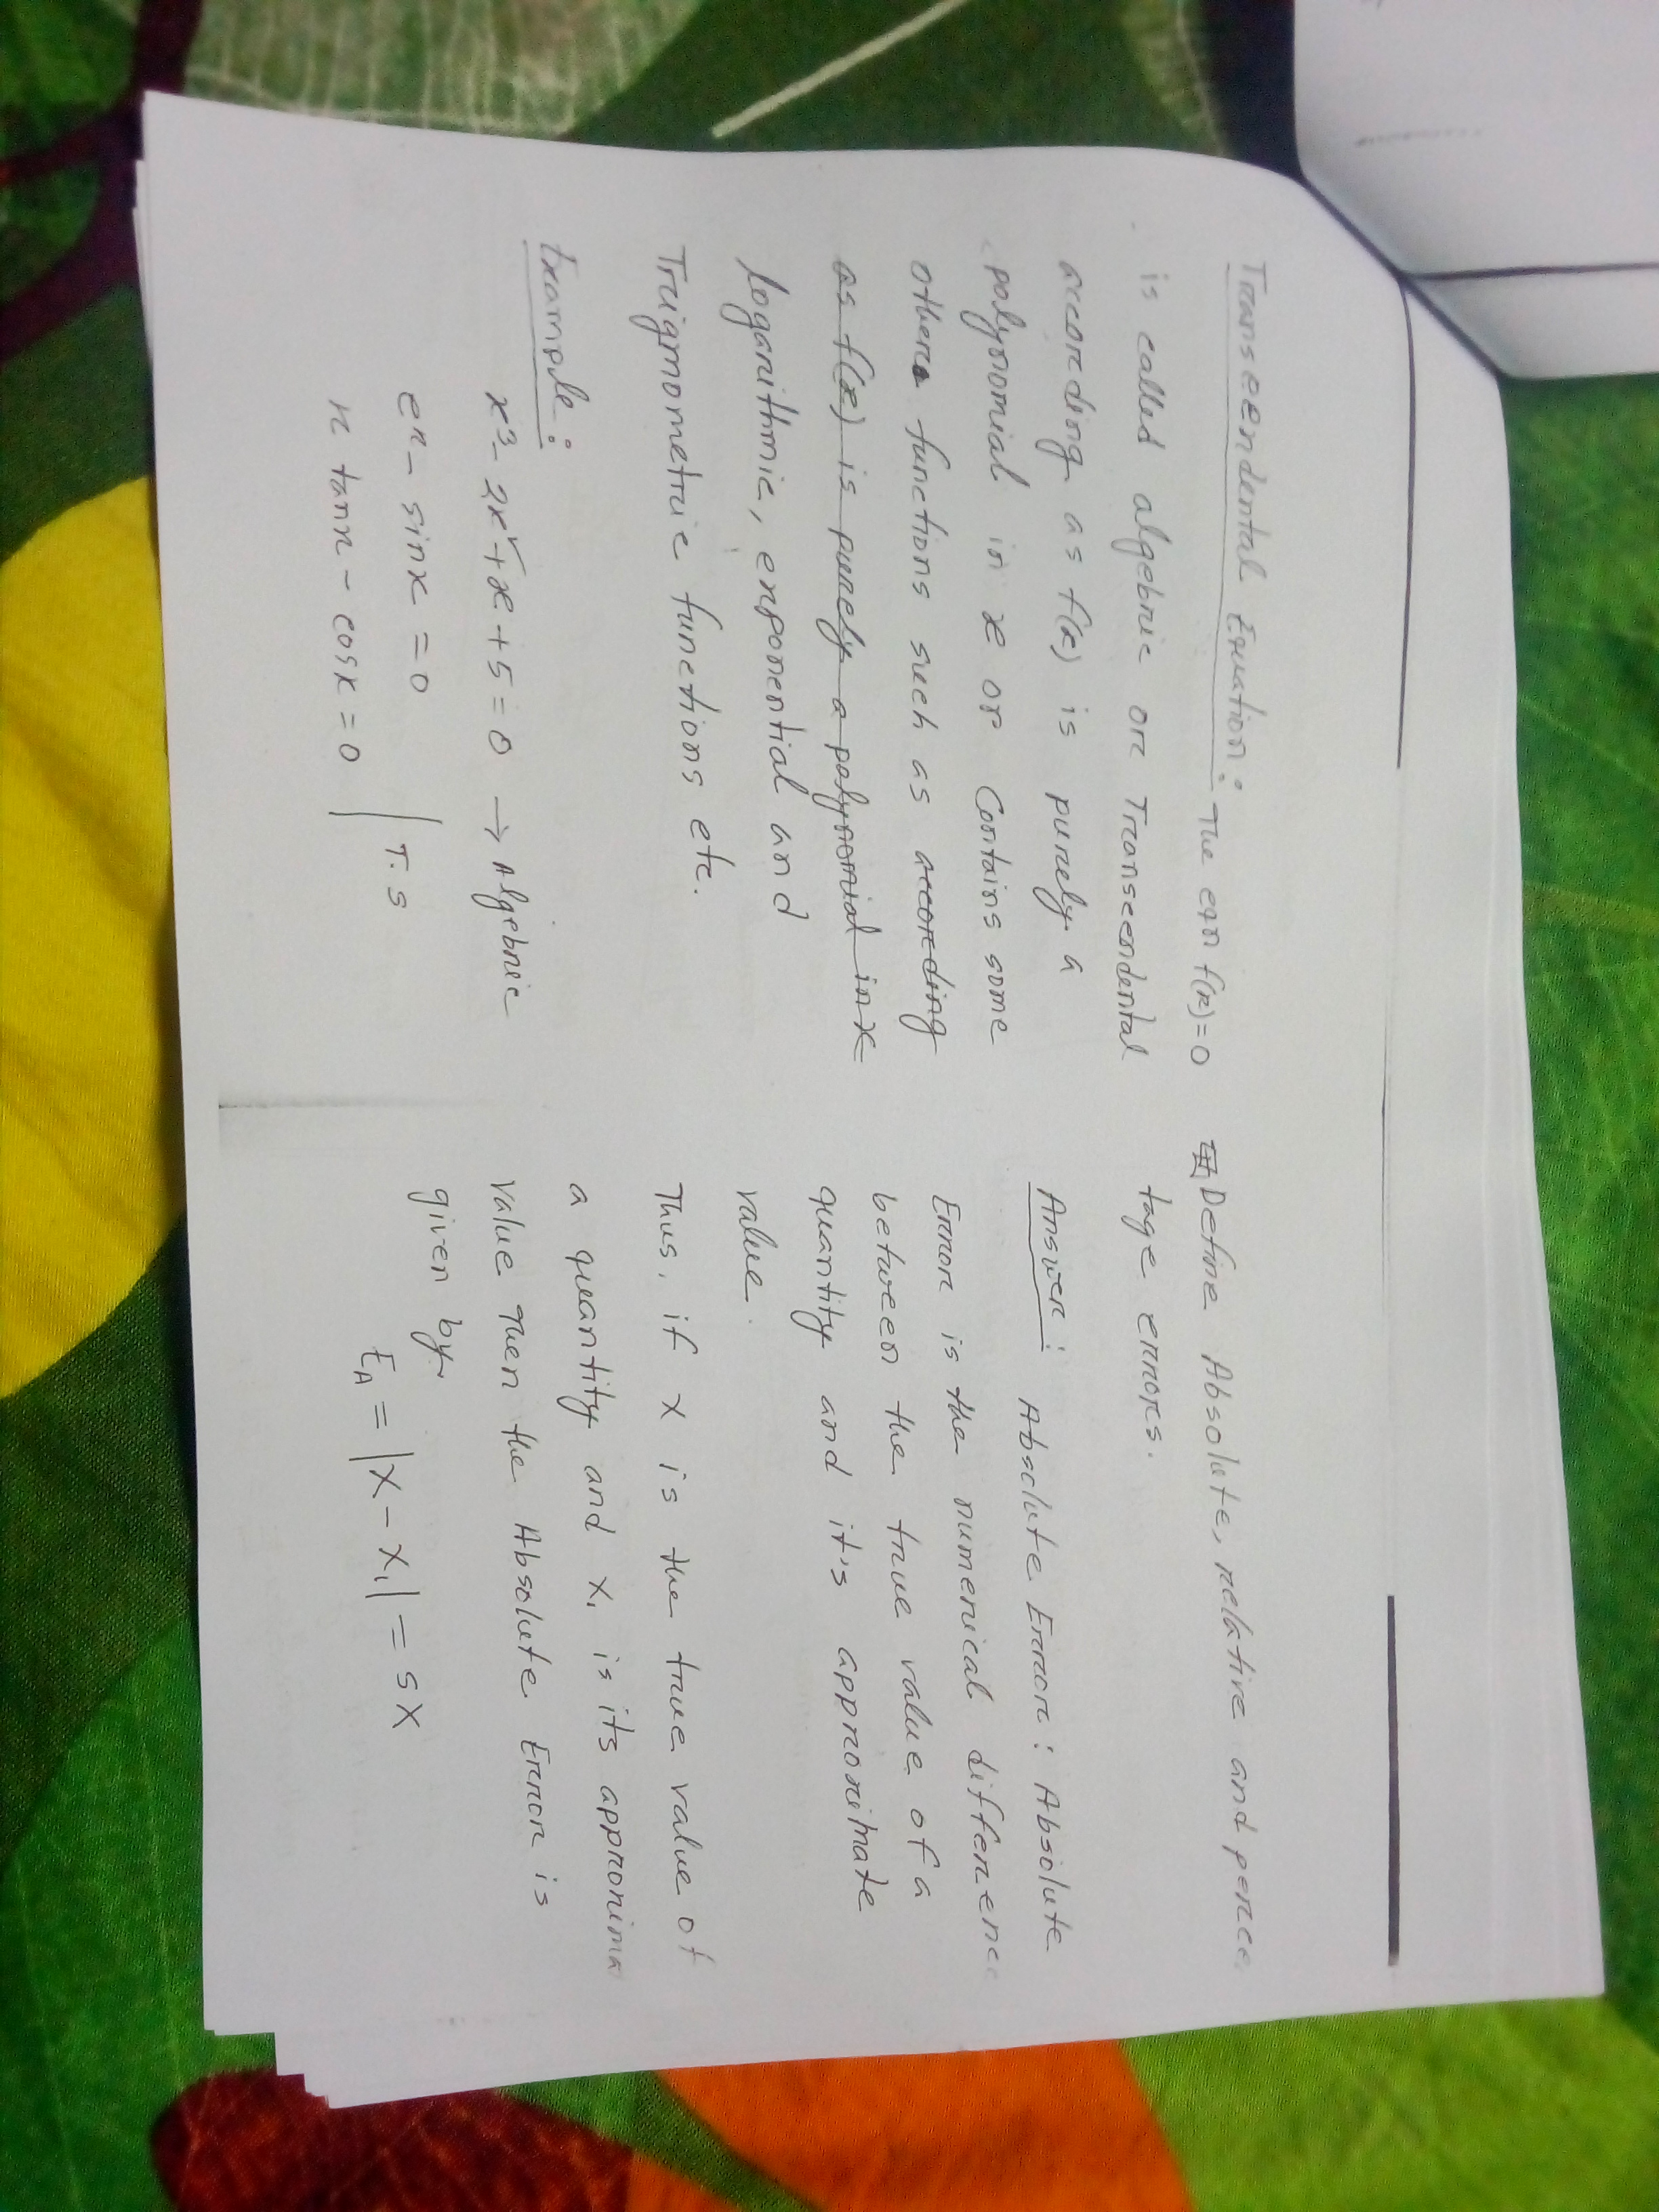 Transeendental Equation:
The eqn f(x)=0
is called algebric or Transeendental
according as f(x) is purely a
polynomial in x or Contains some
other functions such as according
as f(x) is purely a polynomial in x
logarithmic, exponential and
Trigmometric functions etc.
Example:
x³- 2x²+x+5=0 → Algebric
eˣ- sinx =0
x tanx - cosx=0
T. S
Define Absolute, relative and perce
tage errors.
Answer:
Absolute Error: Absolute
Error is the numerical differenc
between the true value of a
quantity and it's approximate
value.
Thus, if X is the true value of
a quantity and X₁ is its approxima
value Then the Absolute Error is
given by
E_A = |X- X₁| = SX